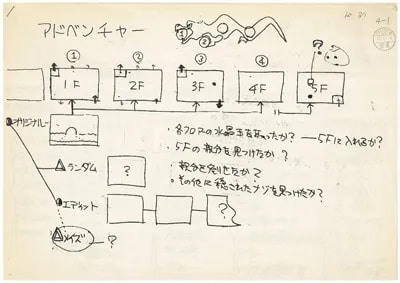 10.27
4-1
アドベンチャー
① ②
① ② ③ ④ ?
1F 2F 3F 4F 5F
オリジナル
・各フロアの水晶玉をとったか? — 5Fに入れるか?
・5Fの親分を見つけたか?
・親分を倒せたか?
・その他に隠されたナゾを見つけたか?
ランダム ?
エディット ?
メイズ ?